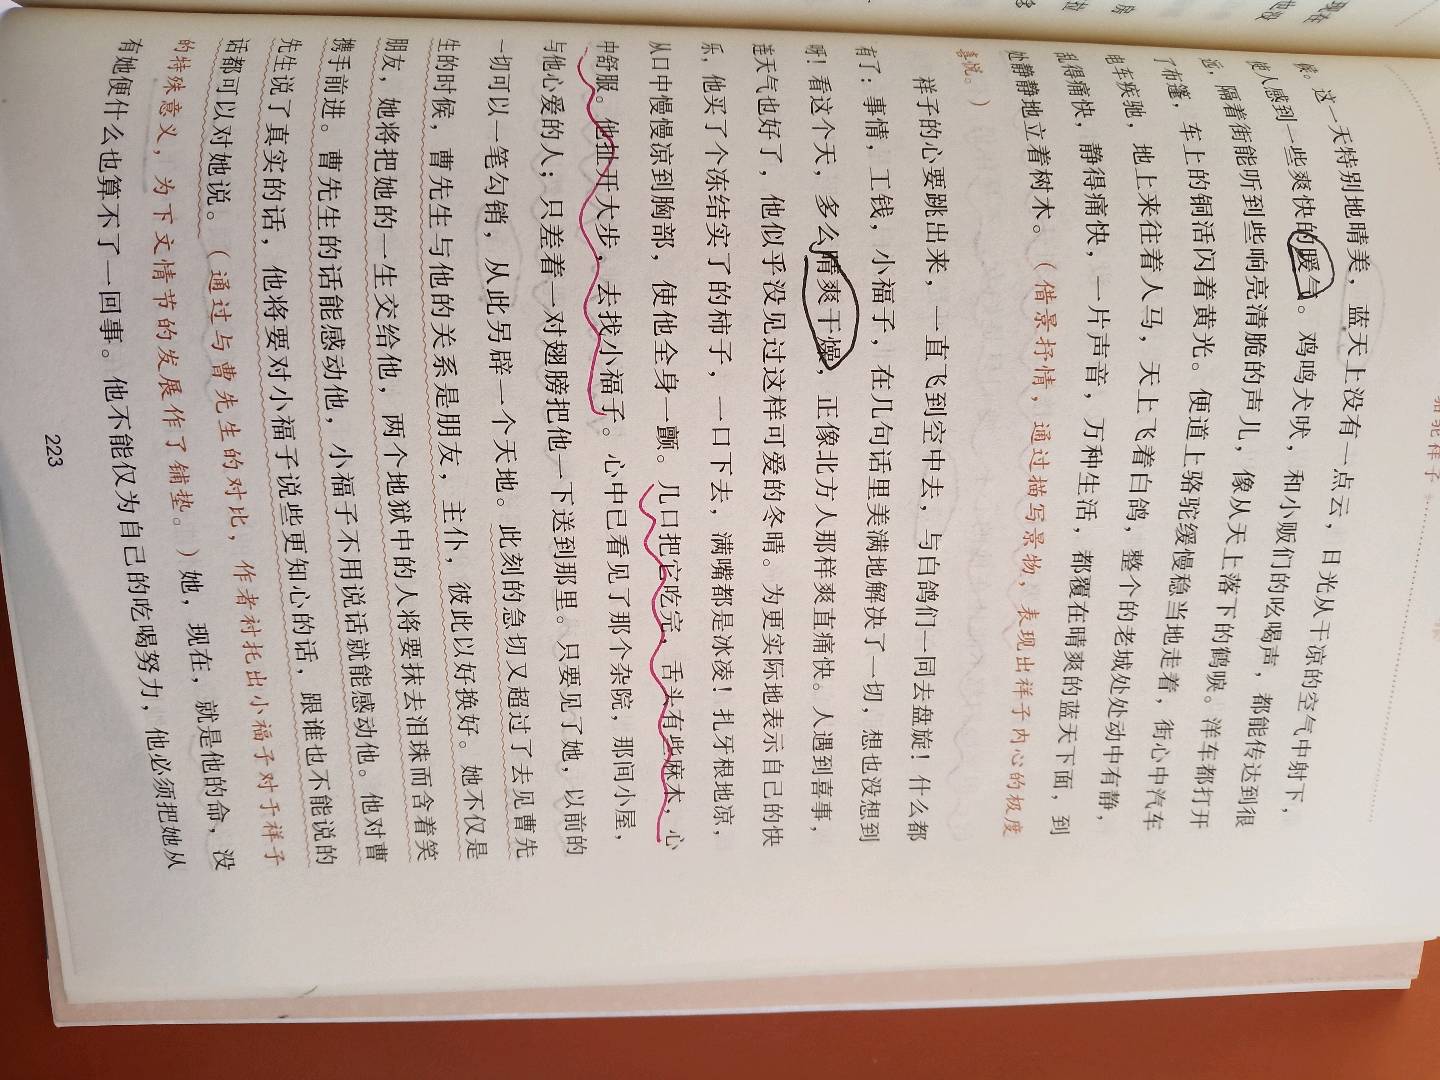 骆驼祥子
候。这一天特别地晴美，蓝天上没有一点云，日光从干凉的空气中射下，
使人感到一些爽快的暖气。鸡鸣犬吠，和小贩们的吆喝声，都能传达到很
远，隔着街能听到些响亮清脆的声儿，像从天上落下的鹤唳。洋车都打开
了布篷，车上的铜活闪着黄光。便道上骆驼缓慢稳当地走着，街心中汽车
电车疾驰，地上来往着人马，天上飞着白鸽，整个的老城处处动中有静，
乱得痛快，静得痛快，一片声音，万种生活，都覆在晴爽的蓝天下面，到
处静静地立着树木。（借景抒情，通过描写景物，表现出祥子内心的极度
喜悦。）
祥子的心要跳出来，一直飞到空中去，与白鸽们一同去盘旋！什么都
有了：事情，工钱，小福子，在几句话里美满地解决了一切，想也没想到
呀！看这个天，多么晴爽干燥，正像北方人那样爽直痛快。人遇到喜事，
连天气也好了，他似乎没见过这样可爱的冬晴。为更实际地表示自己的快
乐，他买了个冻结实了的柿子，一口下去，满嘴都是冰凌！扎牙根地凉，
从口中慢慢凉到胸部，使他全身一颤。几口把它吃完，舌头有些麻木，心
中舒服。他扯开大步，去找小福子。心中已看见了那个杂院，那间小屋，
与他心爱的人；只差着一对翅膀把他一下送到那里。只要见了她，以前的
一切可以一笔勾销，从此另辟一个天地。此刻的急切又超过了去见曹先
生的时候，曹先生与他的关系是朋友，主仆，彼此以好换好。她不仅是
朋友，她将把她的一生交给他，两个地狱中的人将要抹去泪珠而含着笑
携手前进。曹先生的话能感动他，小福子不用说话就能感动他。他对曹
先生说了真实的话，他将要对小福子说些更知心的话，跟谁也不能说的
话都可以对她说。（通过与曹先生的对比，作者衬托出小福子对于祥子
的特殊意义，为下文情节的发展作了铺垫。）她，现在，就是他的命，没
有她便什么也算不了一回事。他不能仅为自己的吃喝努力，他必须把她从
223